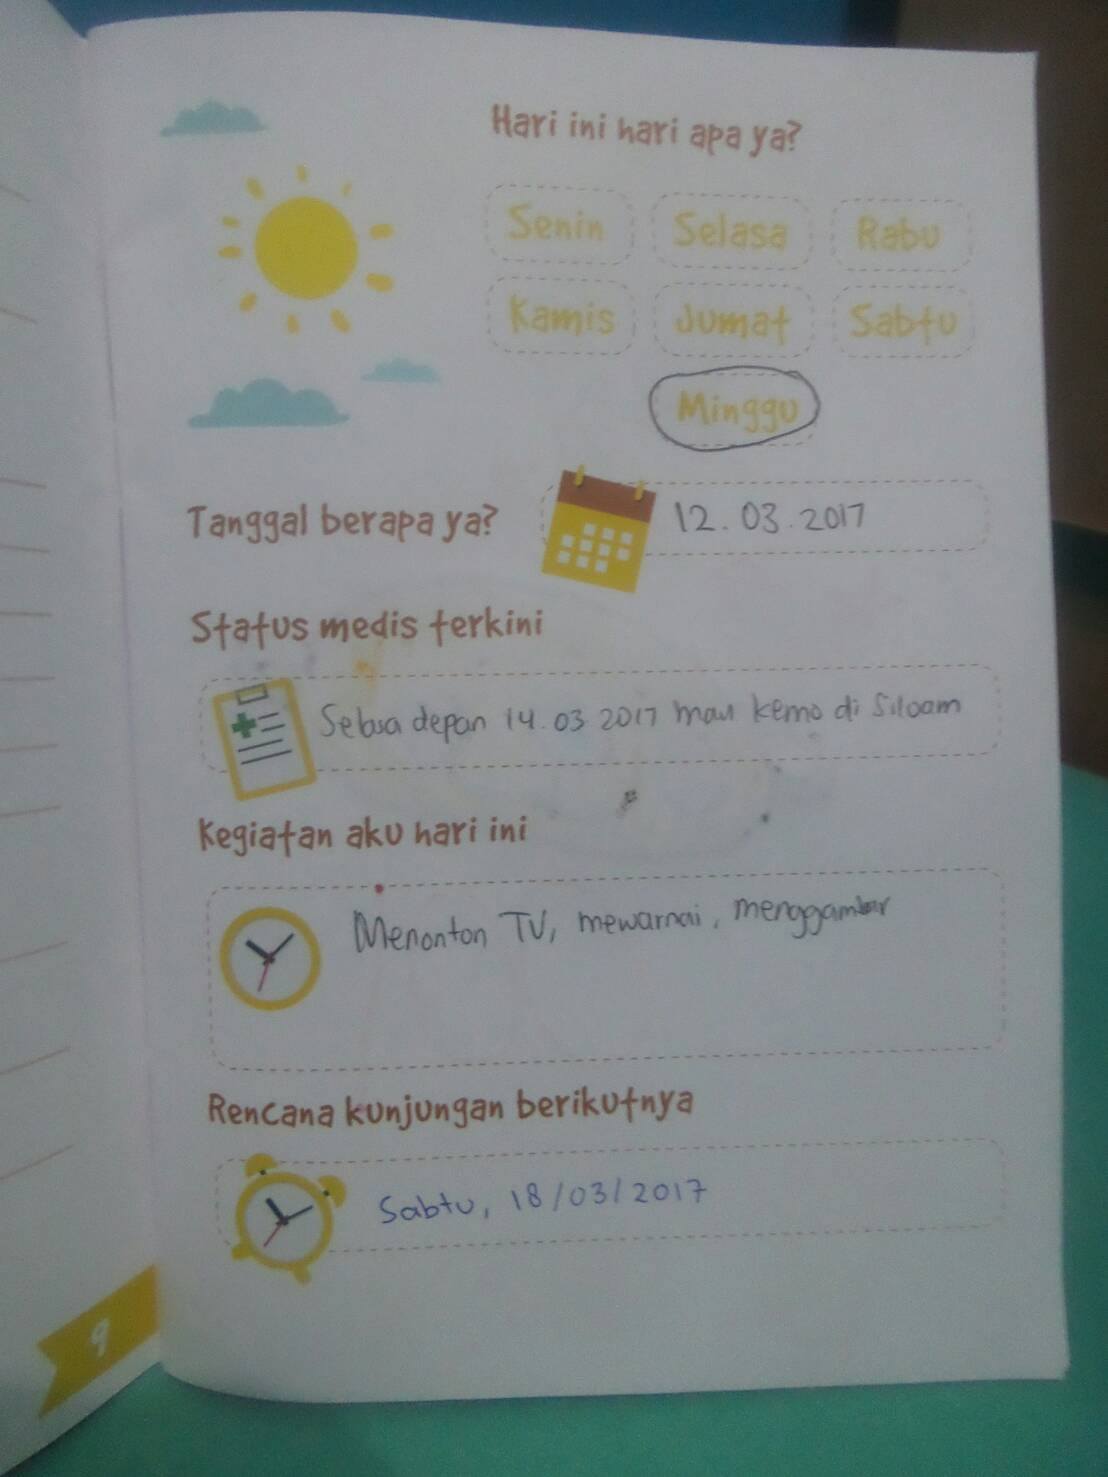 Hari ini hari apa ya?
Senin Selasa Rabu
Kamis Jumat Sabtu
Minggu
Tanggal berapa ya? 12.03.2017
Status medis terkini
Selasa depan 14.03 2017 mau kemo di Siloam
Kegiatan aku hari ini
Menonton TV, mewarnai, menggambar
Rencana kunjungan berikutnya
Sabtu, 18/03/2017
9